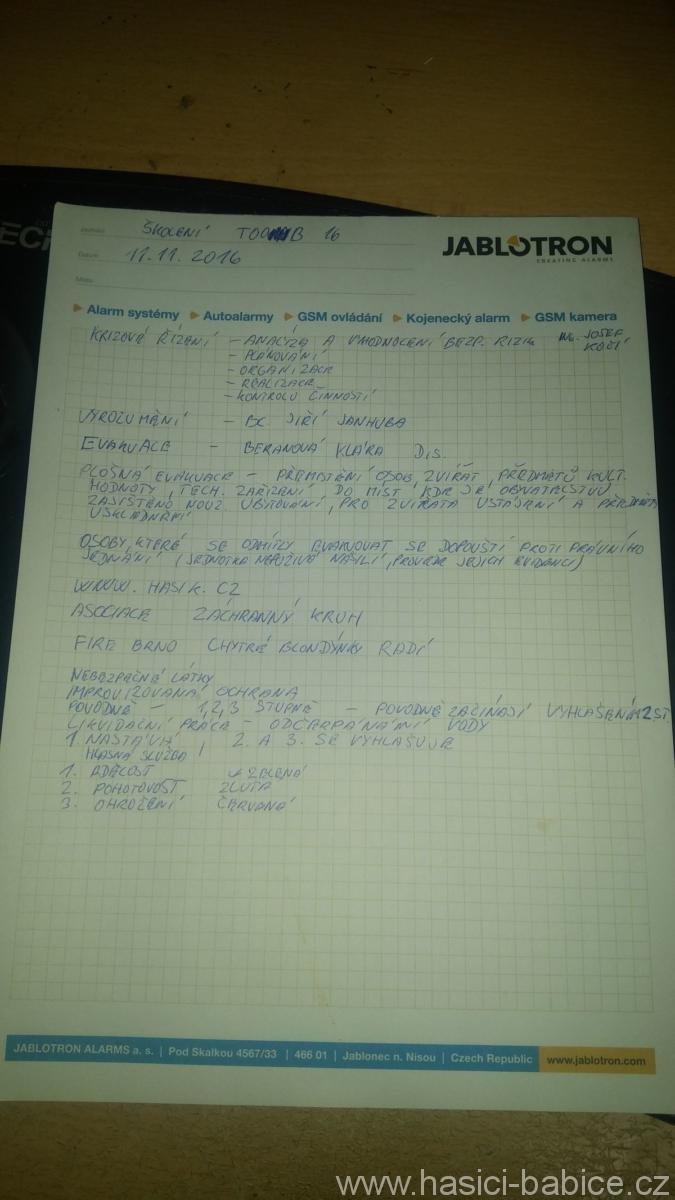 ŠKOLENÍ TOO B 16
JABLOTRON
CREATING ALARMS
Datum 11.11.2016
Místo
Alarm systémy Autoalarmy GSM ovládání Kojenecký alarm GSM kamera
KRIZOVÉ ŘÍZENÍ - ANALÝZA A VYHODNOCENÍ BEZP. RIZIK ING. JOSEF KOČÍ
- PLÁNOVÁNÍ
- ORGANIZACE
- REALIZACE
- KONTROLU ČINNOSTÍ
VYROZUMĚNÍ - BC JIŘÍ JANHUBA
EVAKUACE - BERANOVÁ KLÁRA D,S.
PLOŠNÁ EVAKUACE - PŘEMÍSTĚNÍ OSOB, ZVÍŘAT, PŘEDMĚTŮ KULT.
HODNOTY, TECH. ZAŘÍZENÍ DO MÍST, KDE JE OBYVATELSTVU
ZAJIŠTĚNO NOUZ. UBYTOVÁNÍ, PRO ZVÍŘATA USTÁJENÍ A PŘEDMĚTY
USKLADNĚNÍ
OSOBY, KTERÉ SE ODMÍTLY EVAKUOVAT SE DOPOUŠTÍ PROTI PRÁVNÍHO
JEDNÁNÍ (JEDNOTKA NEPUŽIVÁ NÁSILÍ, PROVEDE JEJICH EVIDENCI)
WWW. HASIK. CZ
ASOCIACE ZÁCHRANNÝ KRUH
FIRE BRNO CHYTRÉ BLONDÝNKY RADÍ
NEBEZPEČNÉ LÁTKY
IMPROVIZOVANÁ OCHRANA
POVODNĚ - 1,2,3 STUPNĚ - POVODNĚ ZAČÍNAJÍ VYHLÁŠENÍM 2 ST
LIKVIDAČNÍ PRÁCE - ODČERPÁNÁMÍ VODY
1. NASTÁVÁ, 2. A 3. SE VYHLAŠUJE
HLÁSNÁ SLUŽBA
1. BDĚLOST ZELENÁ
2. POHOTOVOST, ŽLUTÁ
3. OHROŽENÍ ČERVENÁ
JABLOTRON ALARMS a. s. | Pod Skalkou 4567/33 | 466 01 | Jablonec n. Nisou | Czech Republic www.jablotron.com
www.hasici-babice.cz